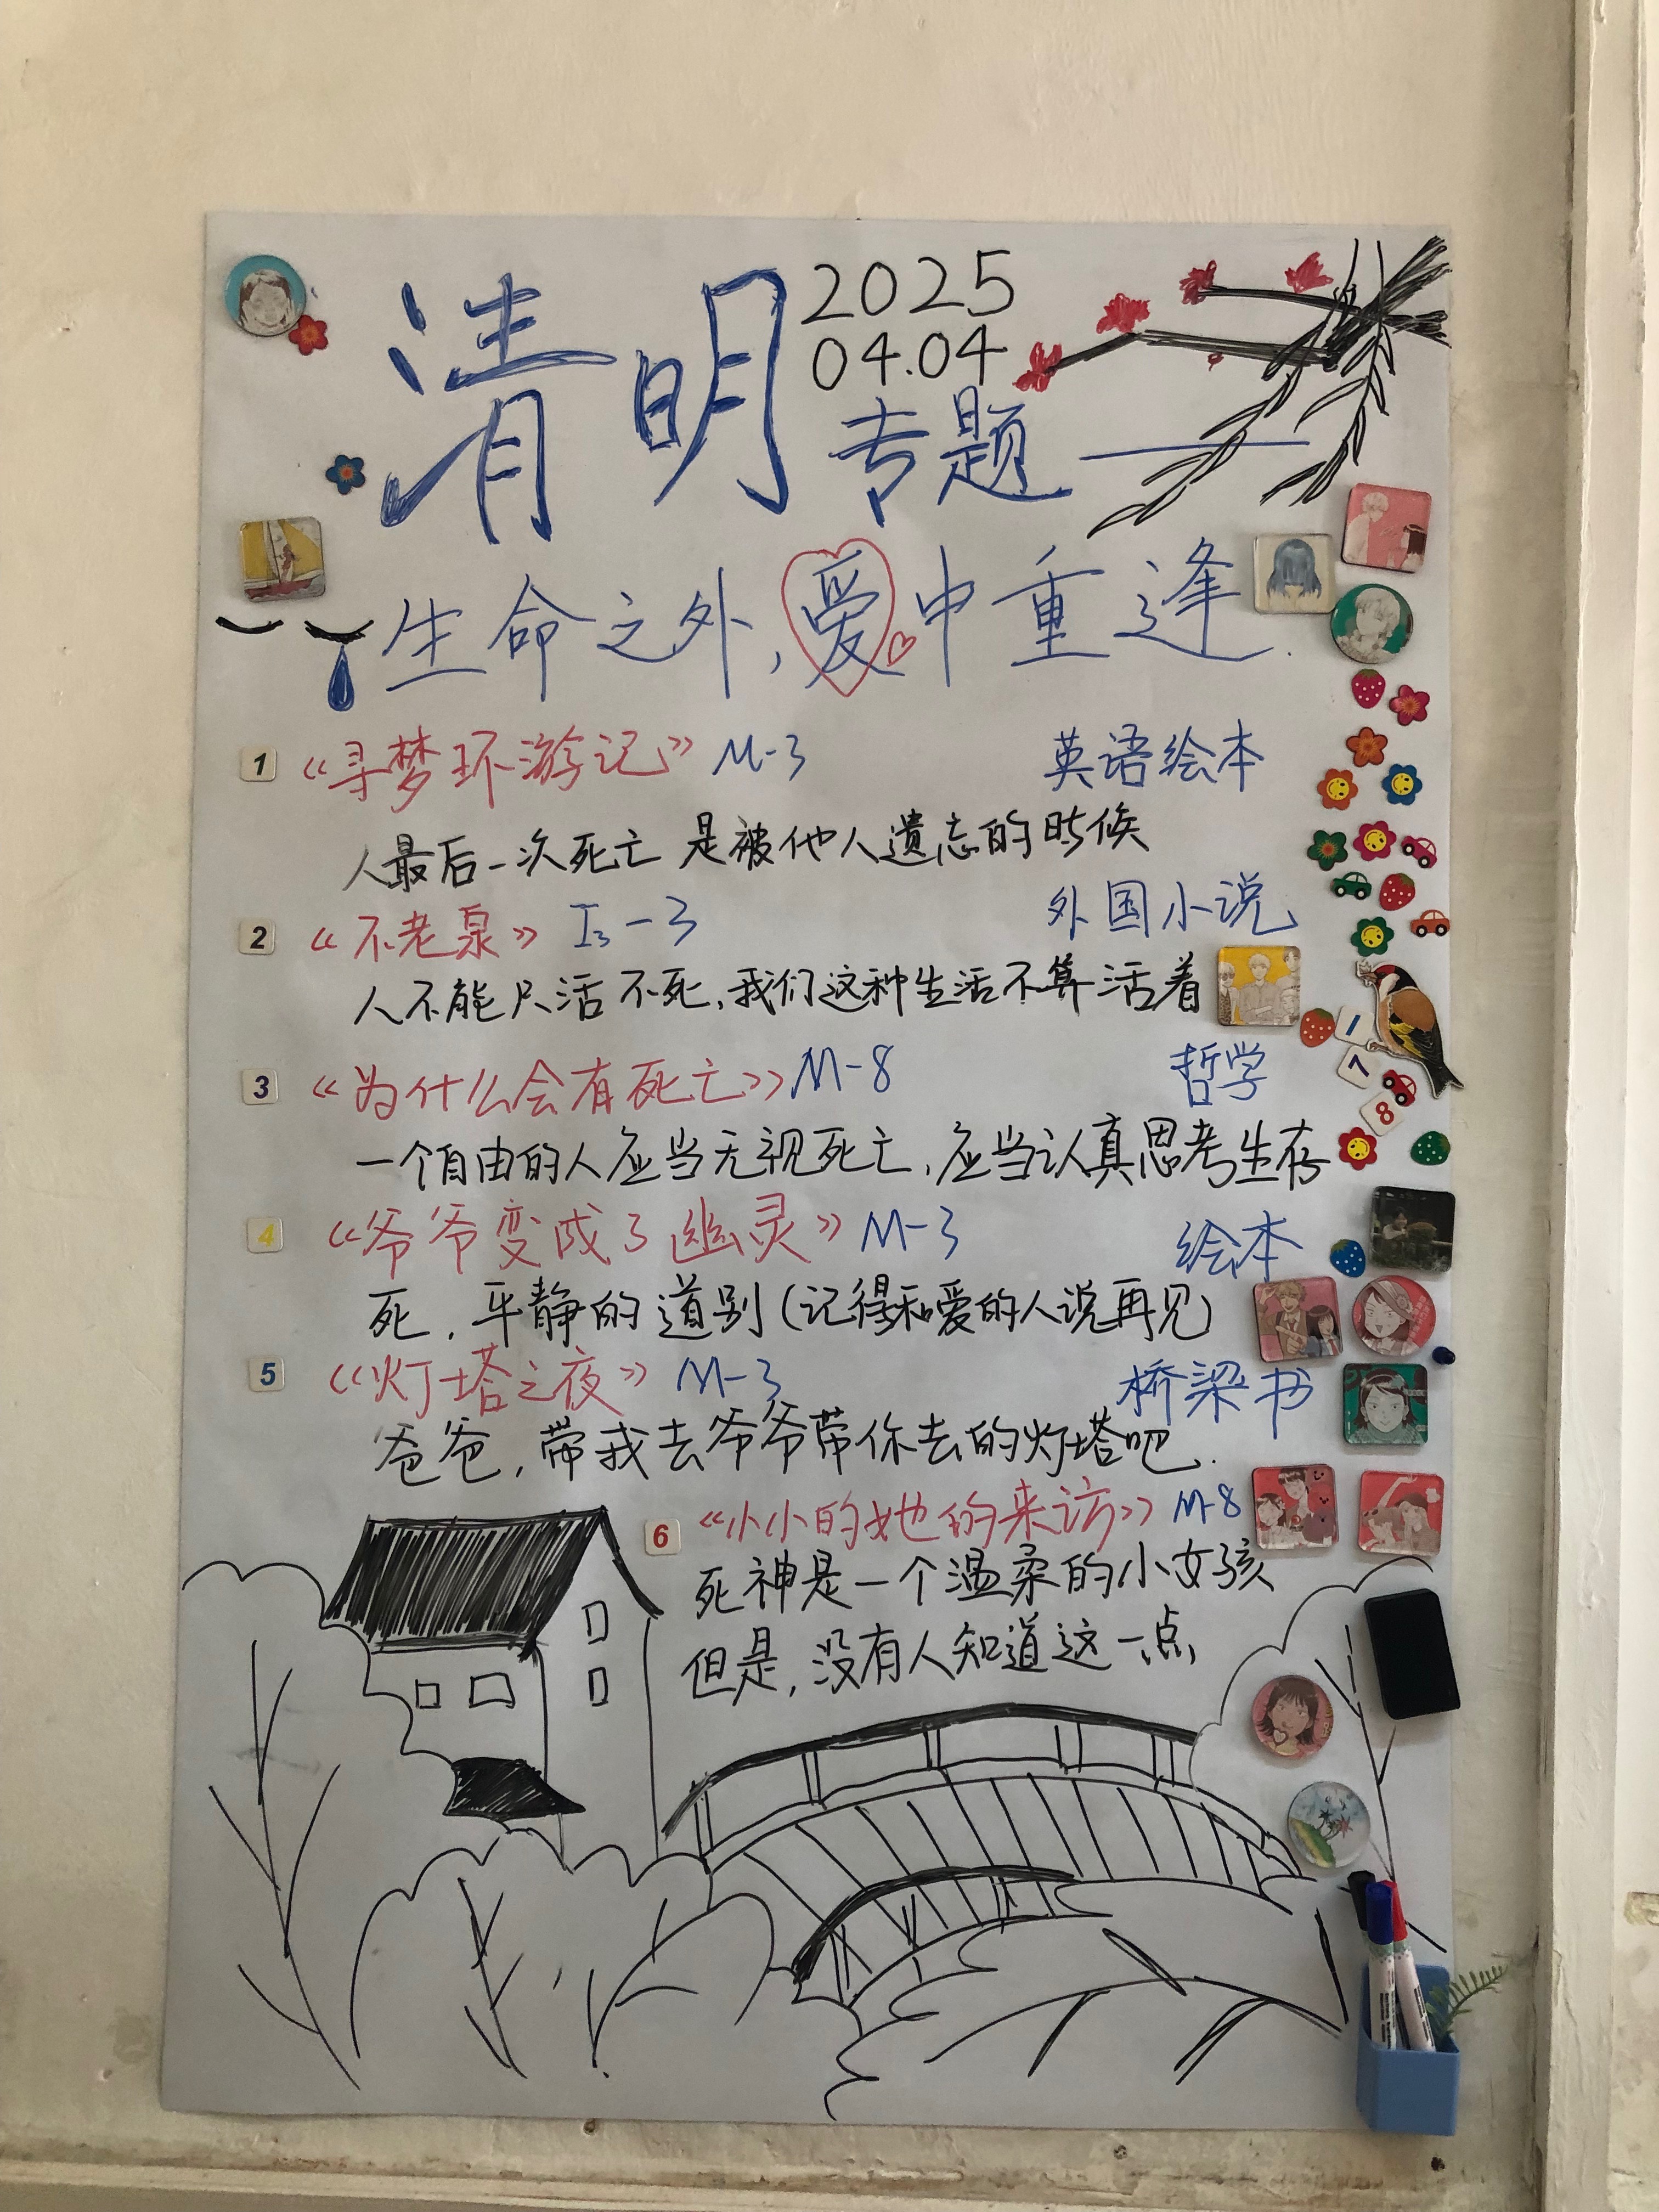 清明
2025
04.04
专题
生命之外,爱中重逢.
1 《寻梦环游记》 M-3 英语绘本
人最后一次死亡 是被他人遗忘的时候
2 《不老泉》 I3-3 外国小说
人不能只活不死,我们这种生活不算活着
3 《为什么会有死亡》 M-8 哲学
一个自由的人应当无视死亡,应当认真思考生存
4 《爷爷变成了幽灵》 M-3 绘本
死,平静的道别(记得和爱的人说再见)
5 《灯塔之夜》 M-3 桥梁书
爸爸,带我去爷爷带你去的灯塔吧.
6 《小小的她的来访》 M-8
死神是一个温柔的小女孩
但是,没有人知道这一点
1
7
8